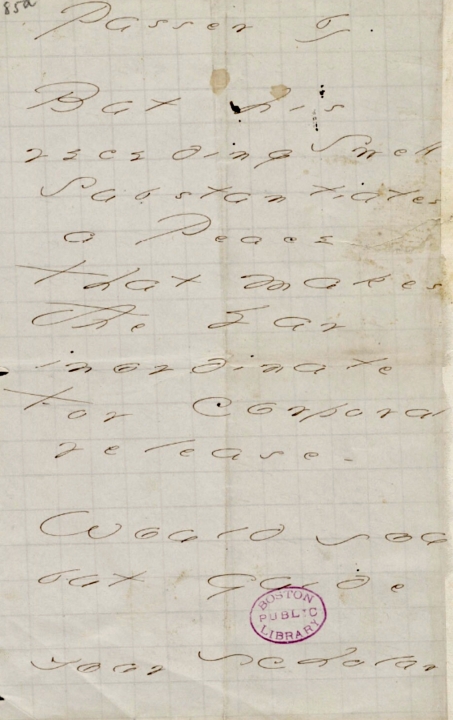 85a
Passer by.
But his
receding Swell
Substantiates
a Peace
That makes
The Ear
inordinate
For Corporal
release -
Would you
but guide
BOSTON
PUBLIC
LIBRARY
Your Scholar